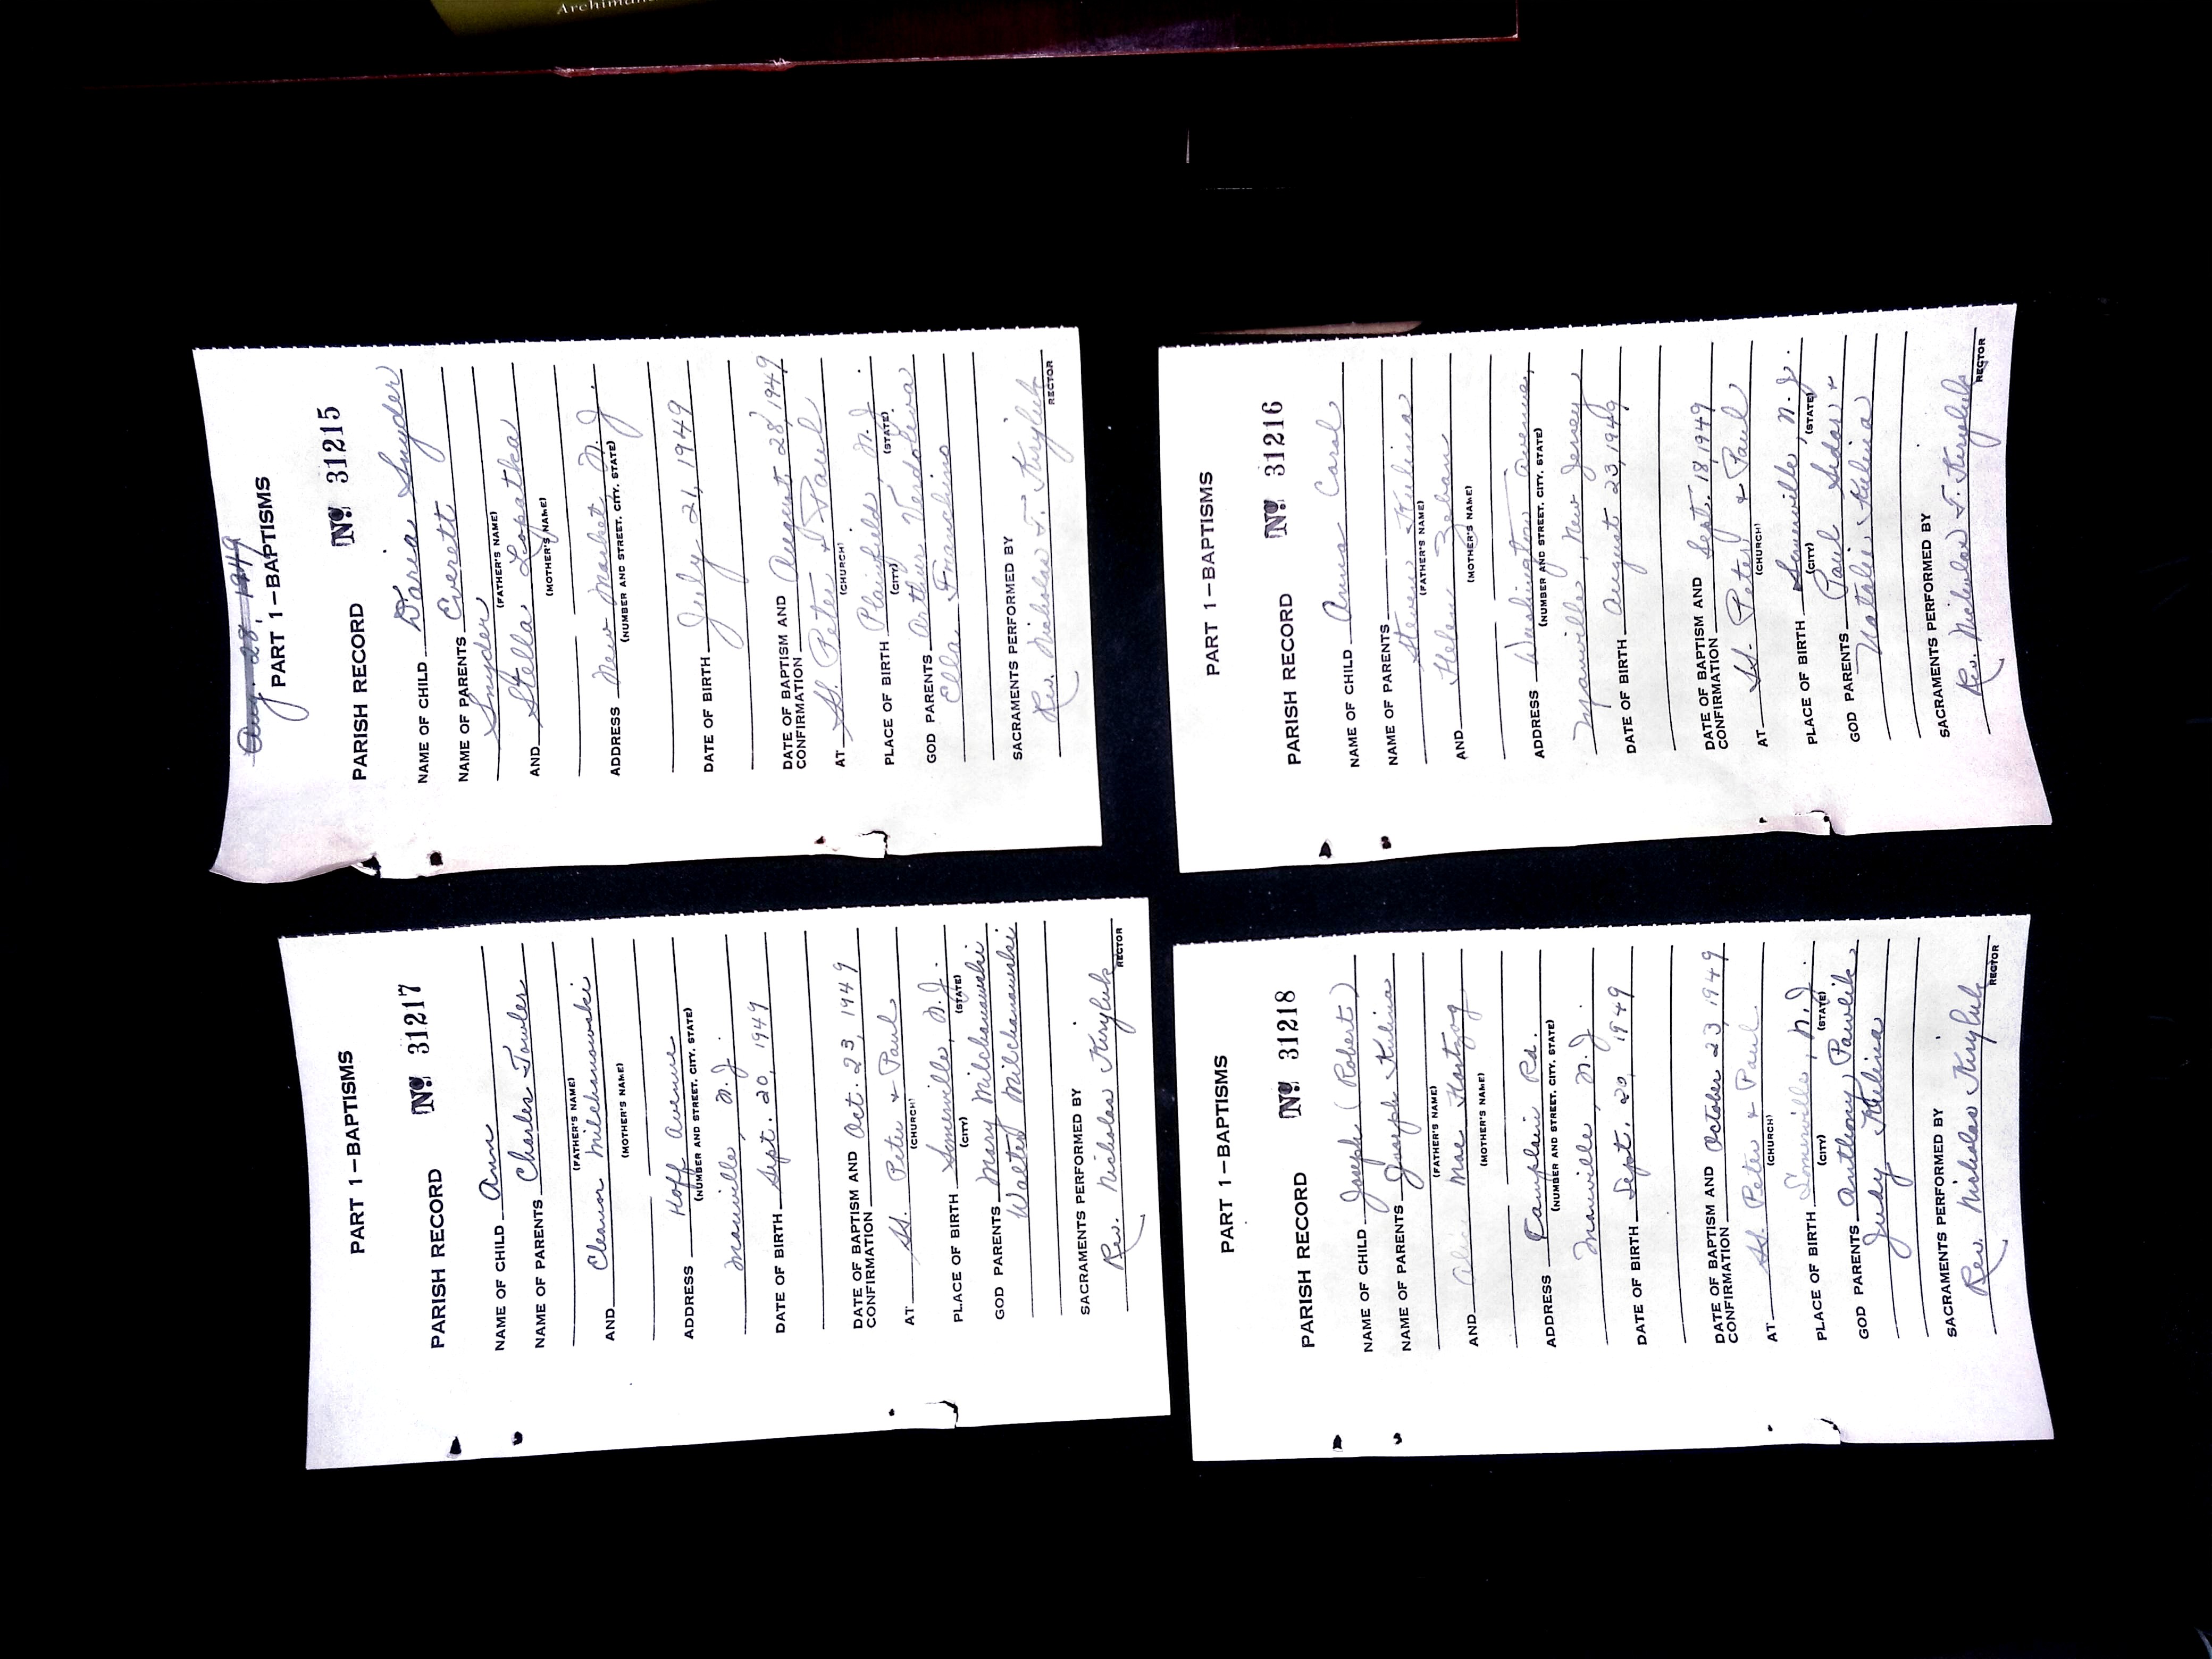 PART 1—BAPTISMS
PARISH RECORD No. 31217
NAME OF CHILD Ann
NAME OF PARENTS Charles Fowler
(FATHER'S NAME)
AND Eleanor Milchanowski
(MOTHER'S NAME)
ADDRESS Hoff Avenue
(NUMBER AND STREET, CITY, STATE)
Manville, N.J.
DATE OF BIRTH Sept. 20, 1949
DATE OF BAPTISM AND
CONFIRMATION Oct. 23, 1949
AT SS. Peter + Paul
(CHURCH)
PLACE OF BIRTH Somerville, N.J.
(CITY) (STATE)
GOD PARENTS Mary Milchanowski
Walter Milchanowski
SACRAMENTS PERFORMED BY
Rev. Nicholas Kiryluk
RECTOR
Aug. 28, 1949
PART 1—BAPTISMS
PARISH RECORD No. 31215
NAME OF CHILD Daria Snyder
NAME OF PARENTS Everett
Snyder
(FATHER'S NAME)
AND Stella Lopatka
(MOTHER'S NAME)
ADDRESS New Market, N.J.
(NUMBER AND STREET, CITY, STATE)
DATE OF BIRTH July 21, 1949
DATE OF BAPTISM AND
CONFIRMATION August 28, 1949
AT SS. Peter + Paul
(CHURCH)
PLACE OF BIRTH Plainfield, N.J.
(CITY) (STATE)
GOD PARENTS Arthur Verdoliva
Ella Franchino
SACRAMENTS PERFORMED BY
Rev. Nicholas F. Kiryluk
RECTOR
PART 1—BAPTISMS
PARISH RECORD No. 31218
NAME OF CHILD Joseph (Robert)
NAME OF PARENTS Joseph Kulina
(FATHER'S NAME)
AND Alice Mae Hartzog
(MOTHER'S NAME)
ADDRESS Camplain Rd.
(NUMBER AND STREET, CITY, STATE)
Manville, N.J.
DATE OF BIRTH Sept. 20, 1949
DATE OF BAPTISM AND
CONFIRMATION October 23, 1949
AT SS. Peter + Paul
(CHURCH)
PLACE OF BIRTH Somerville, N.J.
(CITY) (STATE)
GOD PARENTS Anthony Pawlik,
Judy Kulina
SACRAMENTS PERFORMED BY
Rev. Nicholas Kiryluk
RECTOR
PART 1—BAPTISMS
PARISH RECORD No. 31216
NAME OF CHILD Anna Carol
NAME OF PARENTS
Steven Kulina
(FATHER'S NAME)
AND Helen Zeban
(MOTHER'S NAME)
ADDRESS Washington Avenue,
(NUMBER AND STREET, CITY, STATE)
Manville, New Jersey
DATE OF BIRTH August 23, 1949
DATE OF BAPTISM AND
CONFIRMATION Sept. 18, 1949
AT SS. Peter + Paul
(CHURCH)
PLACE OF BIRTH Somerville, N.J.
(CITY) (STATE)
GOD PARENTS Paul Sidar +
Natalie Kulina
SACRAMENTS PERFORMED BY
Rev. Nicholas F. Kiryluk
RECTOR